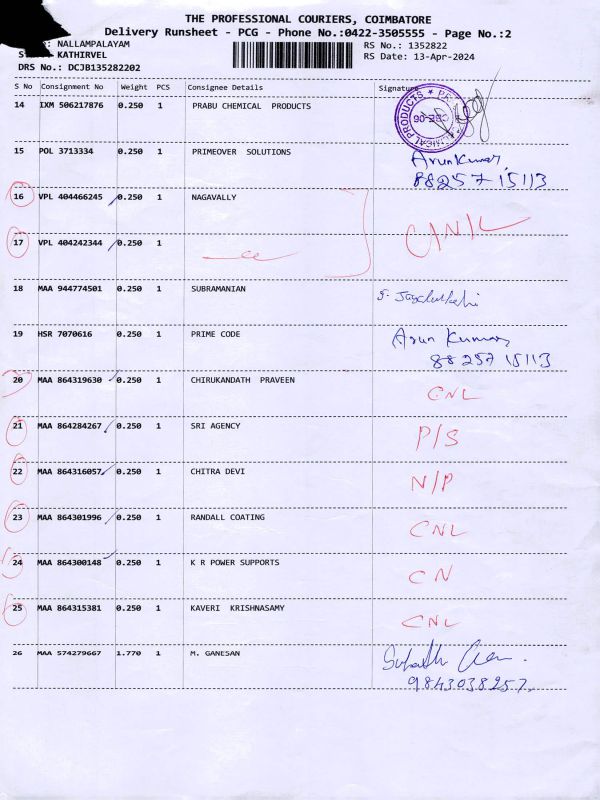 THE PROFESSIONAL COURIERS, COIMBATORE
Delivery Runsheet - PCG - Phone No.:0422-3505555 - Page No.:2
: NALLAMPALAYAM
KATHIRVEL
DRS No.: DCJB135282202
RS No.: 1352822
RS Date: 13-Apr-2024
S No Consignment No Weight PCS Consignee Details Signature
14 IXM 506217876 0.250 1 PRABU CHEMICAL PRODUCTS
CHEMICAL PRODUCTS * CBE-06
15 POL 3713334 0.250 1 PRIMEOVER SOLUTIONS Arun Kumar,
88257 15113
16 VPL 404466245 0.250 1 NAGAVALLY
C/N/L
17 VPL 404242344 0.250 1
18 MAA 944774501 0.250 1 SUBRAMANIAN
19 HSR 7070616 0.250 1 PRIME CODE Arun Kumar,
88257 15113
20 MAA 864319630 0.250 1 CHIRUKANDATH PRAVEEN CNL
21 MAA 864284267 0.250 1 SRI AGENCY P/S
22 MAA 864316057 0.250 1 CHITRA DEVI N/P
23 MAA 864301996 0.250 1 RANDALL COATING CNL
24 MAA 864300148 0.250 1 K R POWER SUPPORTS CN
25 MAA 864315381 0.250 1 KAVERI KRISHNASAMY CNL
26 MAA 574279667 1.770 1 M. GANESAN
9843038257.